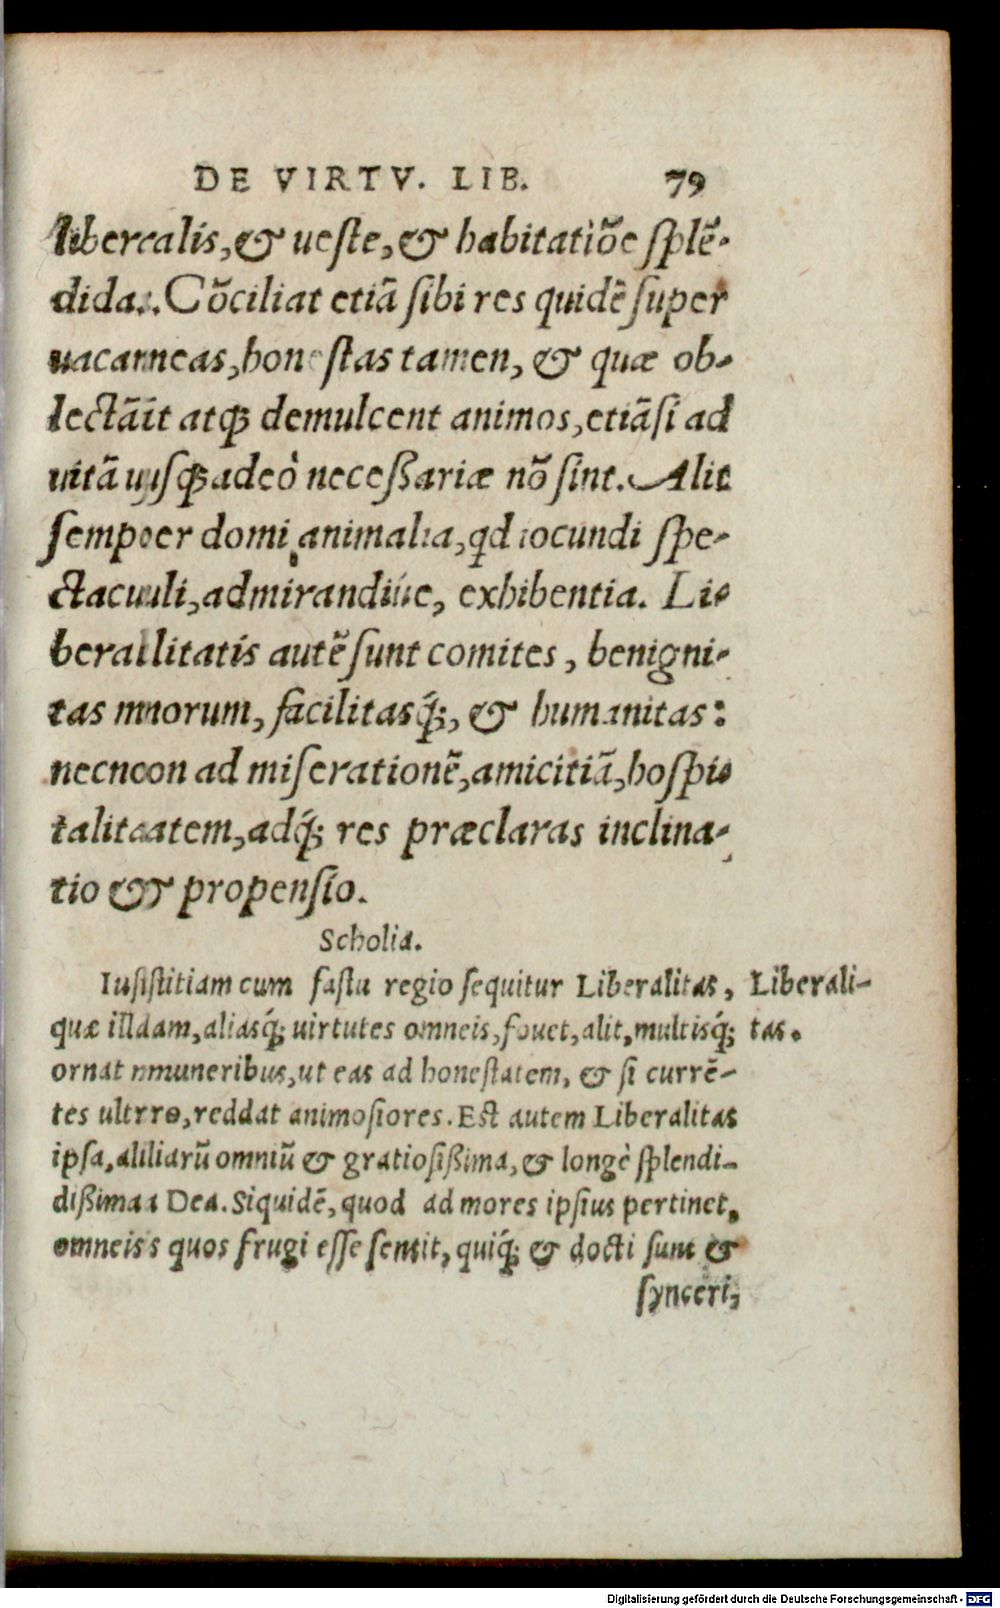 DE VIRTV. LIB. 79
liberalis, & ueste, & habitatiõe splẽ-
dida. Cõciliat etiã sibi res quidẽ super
uacaneas, honestas tamen, & quæ ob-
lectãt atq; demulcent animos, etiãsi ad
uitã usq; adeò necessariæ nõ sint. Alit
semper domi animalia, qd iocundi spe-
ctaculi, admirandiúe, exhibentia. Li-
beralitatis autẽ sunt comites, benigni-
tas morum, facilitasq́;, & humanitas:
necnon ad miserationẽ, amicitiã, hospi-
talitatem, adq́; res præclaras inclina-
tio & propensio.
Scholia.
Iustitiam cum fastu regio sequitur Liberalitas, Liberali-
quæ illam, aliasq́; uirtutes omneis, fouet, alit, multisq́; tas.
ornat muneribus, ut eas ad honestatem, & si currẽ-
tes ultro, reddat animosiores. Est autem Liberalitas
ipsa, aliarũ omniũ & gratiosissima, & longè splendi-
dissima Dea. Siquidẽ, quod ad mores ipsius pertinet,
omneis quos frugi esse sentit, quiq́; & docti sunt &
synceri,
Digitalisierung gefördert durch die Deutsche Forschungsgemeinschaft - DFG